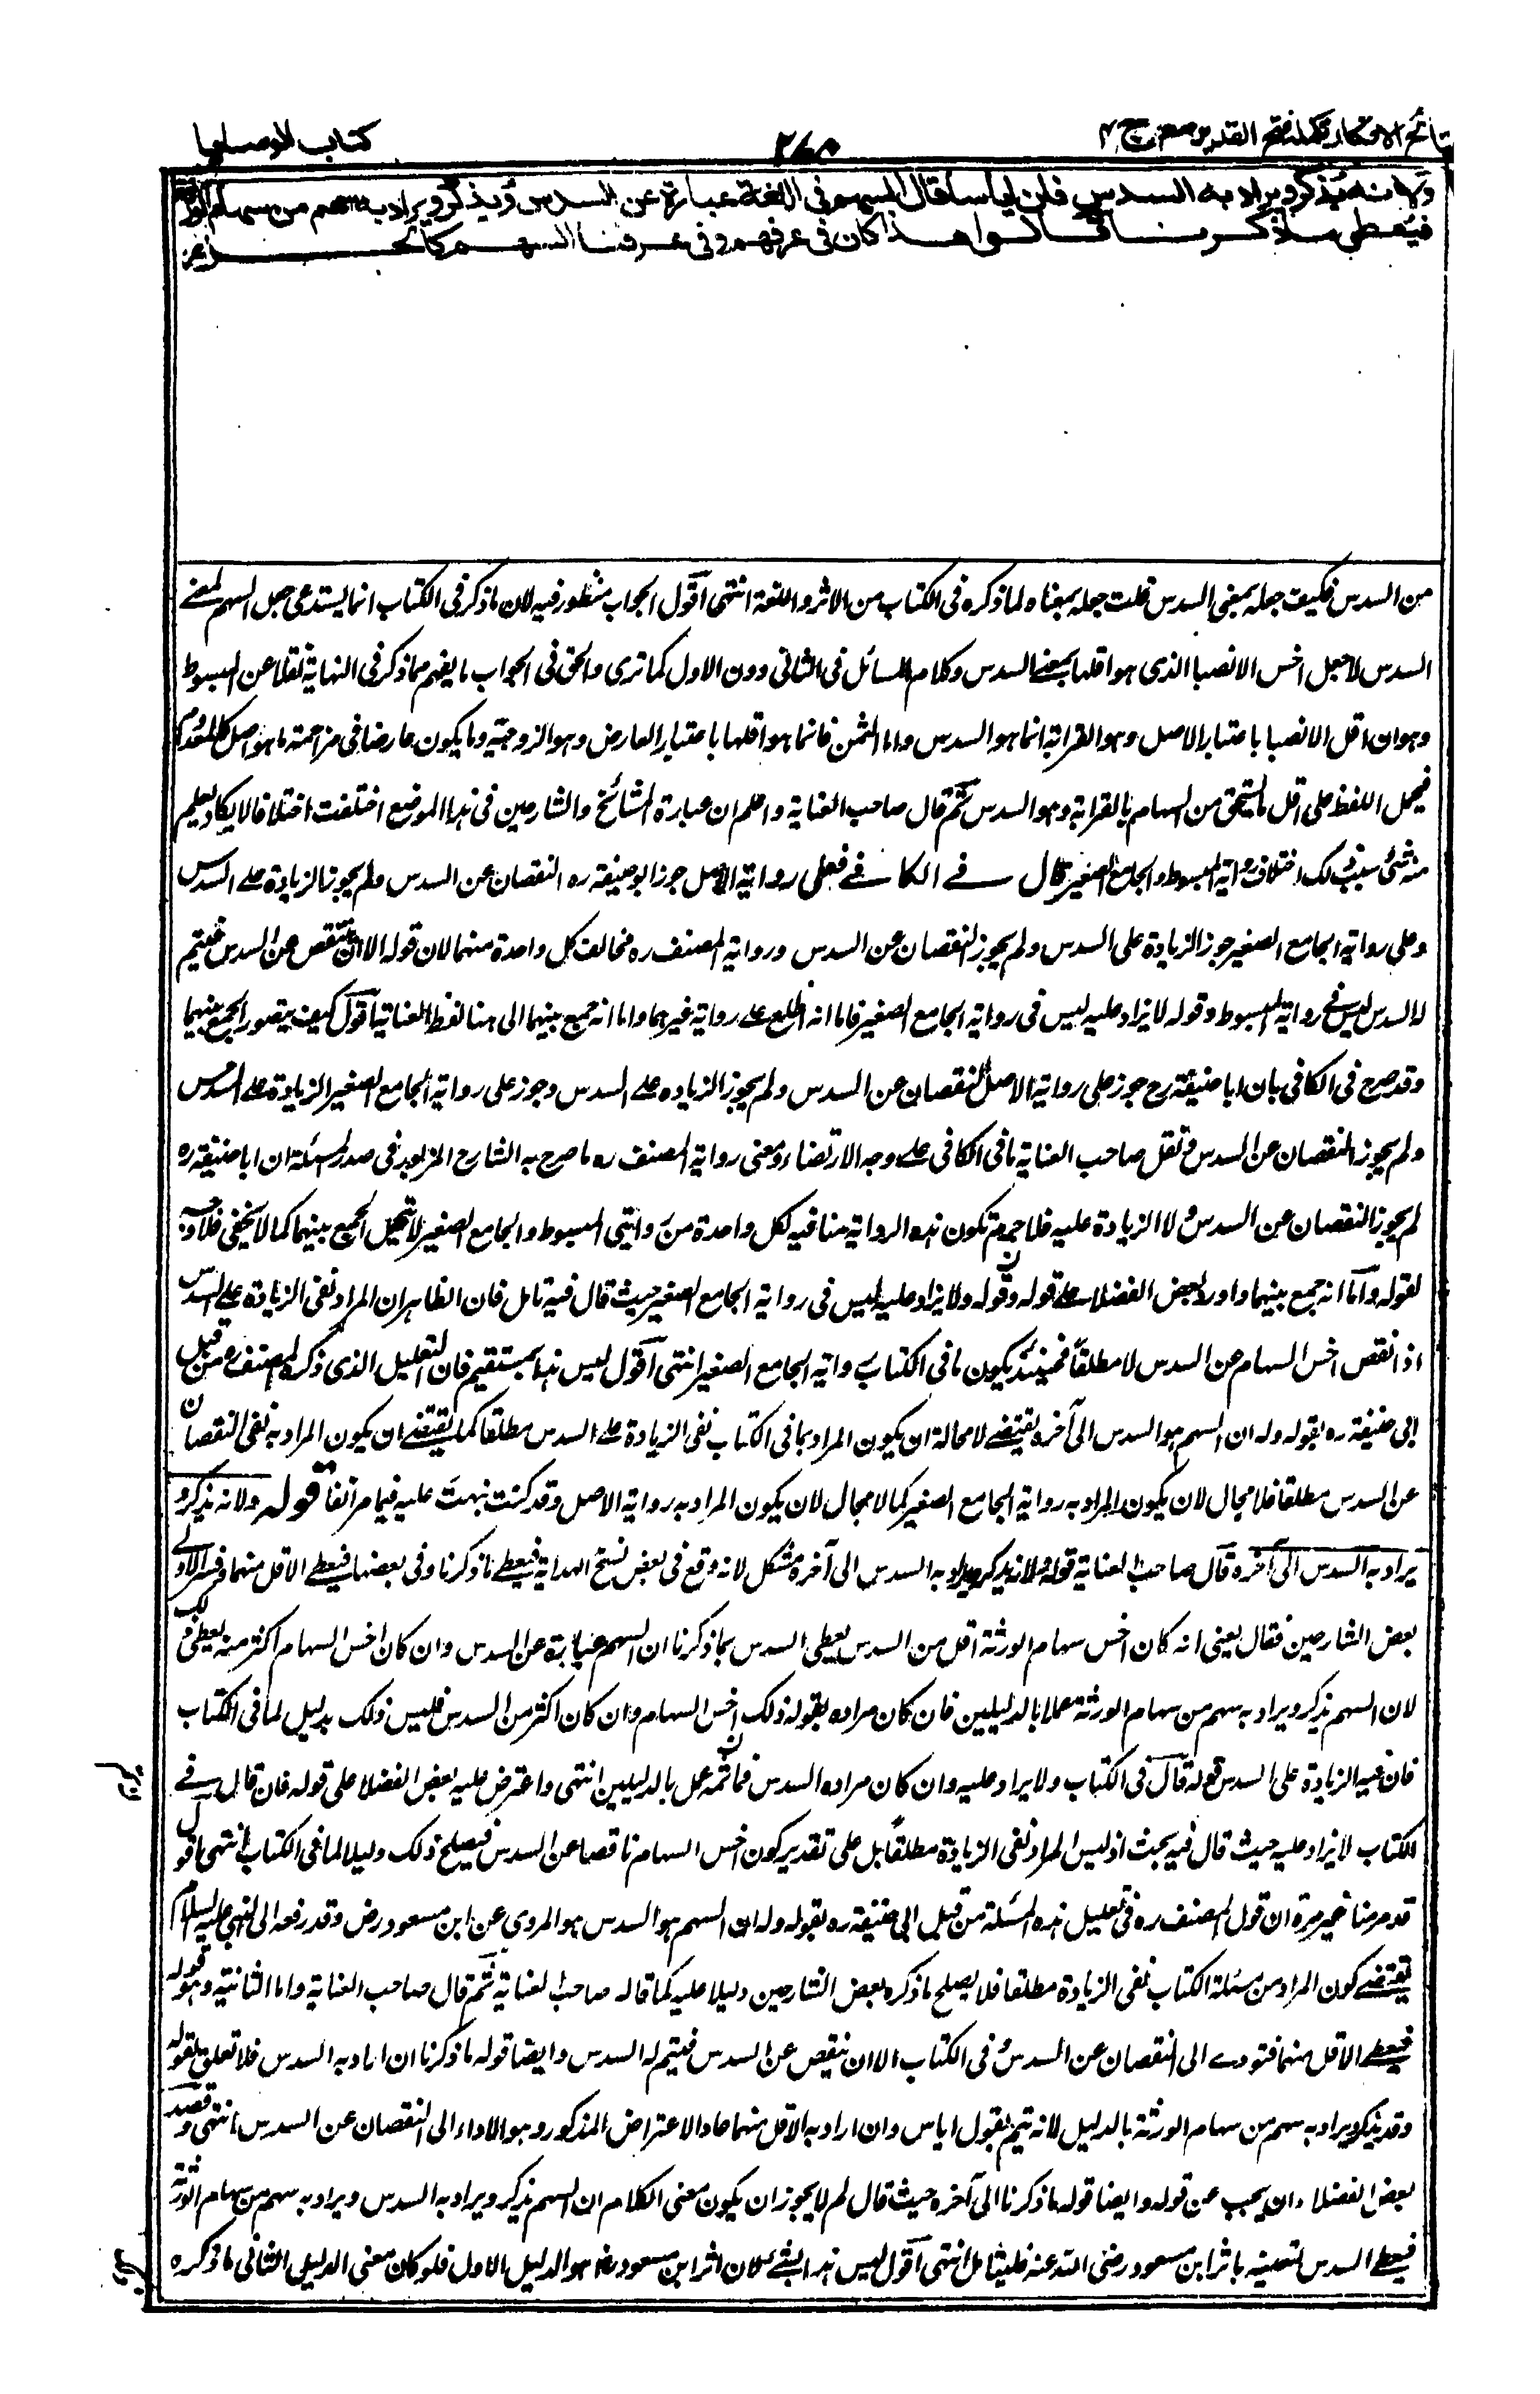 نتائج الافكار تكملة فتح القدير مع ج ۴
۴۶۸
كتاب الوصايا
ولانه يُذكر ويراد به السدس فان اياسا قال السهم فى اللغة عبارة عن السدس ويُذكر ويراد به سهم من سهام الورثة
فيُعطى ما ذكرنا قالوا هذا كان فى عرفهم وفى عرفنا السهم كالجزء
من السدس فكيف جعله بمعنى السدس قلت جعله بمعناه لما ذكره فى الكتاب من الاثر واللغة انتهى اقول الجواب منظور فيه لان ما ذكر فى الكتاب انما يستدعى جعل السهم بمعنے
السدس لا جعل اخس الانصبا الذى هو اقلها بمعنے السدس وكلام السائل فى الثانى دون الاول كما ترى والحق فى الجواب ما يفهم مما ذكر فى النهاية نقلا عن المبسوط
وهو ان اقل الانصبا باعتبار الاصل وهو القرابة انما هو السدس واما الثمن فانما هو اقلها باعتبار العارض وهو الزوجية وما يكون عارضا فى مزاحمته ما هو اصل كالمعدوم
فيحمل اللفظ على اقل ما يستحق من السهام بالقرابة وهو السدس ثم قال صاحب العناية واعلم ان عبارة المشائخ والشارحين فى هذا الموضع اختلفت اختلافا لا يكاد يعلم
منه شئ سبب ذلك اختلاف رواية المبسوط والجامع الصغير قال فے الكافے فعلى رواية الاصل جوز ابو حنيفة ره النقصان عن السدس ولم يجوز الزيادة علے السدس
وعلى رواية الجامع الصغير جوز الزيادة على السدس ولم يجوز النقصان عن السدس ورواية المصنف ره تخالف كل واحدة منهما لان قوله الا ان ينقص عن السدس فيتم
له السدس ليس فے رواية المبسوط وقوله لا يزاد عليه ليس فى رواية الجامع الصغير فاما انه اطلع علے رواية غيرهما واما انه جمع بينهما الى هنا لفظ العناية اقول كيف يتصور الجمع بينهما
وقد صرح فى الكافى بان ابا حنيفة رح جوز على رواية الاصل النقصان عن السدس ولم يجوز الزياده علے السدس وجوز على رواية الجامع الصغير الزيادة علے السدس
ولم يجوز النقصان عن السدس ونقل صاحب العناية ما فى الكافى علے وجه الارتضاء ومعنى رواية المصنف ره ما صرح به الشارح المزبور فى صدر المسئلة ان ابا حنيفة ره
لم يجوز النقصان عن السدس ولا الزيادة عليه فلا جرم تكون هذه الرواية منافيه لكل واحدة من روايتى المبسوط والجامع الصغير لا تحتمل الجمع بينهما كما لا يخفى فلا وجه
لقوله واما انه جمع بينهما واورد بعض الفضلا علے قوله وقوله ولا يزاد عليه ليس فى رواية الجامع الصغير حيث قال فيه تامل فان الظاهر ان المراد نفى الزيادة علے السدس
اذا نقص اخس السهام عن السدس لا مطلقاً فحينئذ يكون ما فى الكتاب رواية الجامع الصغير انتهى اقول ليس هذا بمستقيم فان التعليل الذى ذكره المصنف ره من قبل
ابى حنيفة ره بقوله وله ان السهم هو السدس الى آخره يقتضے لا محالة ان يكون المراد بما فى الكتاب نفى الزيادة علے السدس مطلقا كما يقتضے ان يكون المراد به نفى النقصان
عن السدس مطلقا فلا مجال لان يكون المراد به رواية الجامع الصغير كما لا مجال لان يكون المراد به رواية الاصل وقد كنت نبهت عليه فيما مر آنفا قوله ولانه يذكر و
يراد به السدس الى آخره قال صاحب العناية قوله ولانه يذكر ويراد به السدس الى آخره مشكل لانه وقع فى بعض نسخ الهداية فيعطے ما ذكرنا وفى بعضها فيعطے الاقل منهما وفسر الاولى
بعض الشارحين فقال يعنى انه كان اخس سهام الورثة اقل من السدس يعطى السدس بما ذكرنا ان السهم عبارة عن السدس وان كان اخس السهام اكثر منه يعطى ذلك
لان السهم يذكر ويراد به سهم من سهام الورثة عملا بالدليلين فان كان مراده بقوله ذلك اخس السهام وان كان اكثر من السدس فليس ذلك بدليل لما فى الكتاب
فان فيه الزيادة على السدس فانه قال فى الكتاب ولا يزاد عليه وان كان مراده السدس فما ثمه عمل بالدليلين انتهى واعترض عليه بعض الفضلا على قوله فان قال فے
الكتاب لا يزاد عليه حيث قال فيه بحث اذ ليس المراد نفى الزيادة مطلقاً بل على تقدير كون اخس السهام ناقصا عن السدس فيصلح ذلك دليلا لما فى الكتاب انتهى اقول
قد مر منا غير مرة ان قول المصنف ره فى تعليل هذه المسئلة من قبل ابى حنيفة ره بقوله وله ان السهم هو السدس هو المروى عن ابن مسعود رض وقد رفعه الى النبى عليه السلام
يقتضے كون المراد من مسئلة الكتاب نفى الزيادة مطلقا فلا يصلح ما ذكره بعض الشارحين دليلا عليه كما قاله صاحب العناية ثم قال صاحب العناية واما الثانية وهو قوله
فيعطے الاقل منهما فتودے الى النقصان عن السدس وفى الكتاب الا ان ينقص عن السدس فيتم له السدس وايضا قوله ما ذكرنا ان اراد به السدس فلا تعلق لقوله
وقد يذكر ويراد به سهم من سهام الورثة بالدليل لانه تيم بقول اياس وان اراد به الاقل منهما عاد الاعتراض المذكور وهو الاداء الى النقصان عن السدس انتهى وقصد
بعض الفضلاء ان يجيب عن قوله وايضا قوله ما ذكرنا الى آخره حيث قال لم لا يجوز ان يكون معنى الكلام ان السهم يذكر ويراد به السدس ويراد به سهم من سهام الورثة
فيعطے السدس لتعينه باثر ابن مسعود رضى الله عنه فليتامل انتهى اقول ليس هذا بشئ لان اثر ابن مسعود رض هو الدليل الاول فلو كان معنى الدليل الثانى ما ذكره